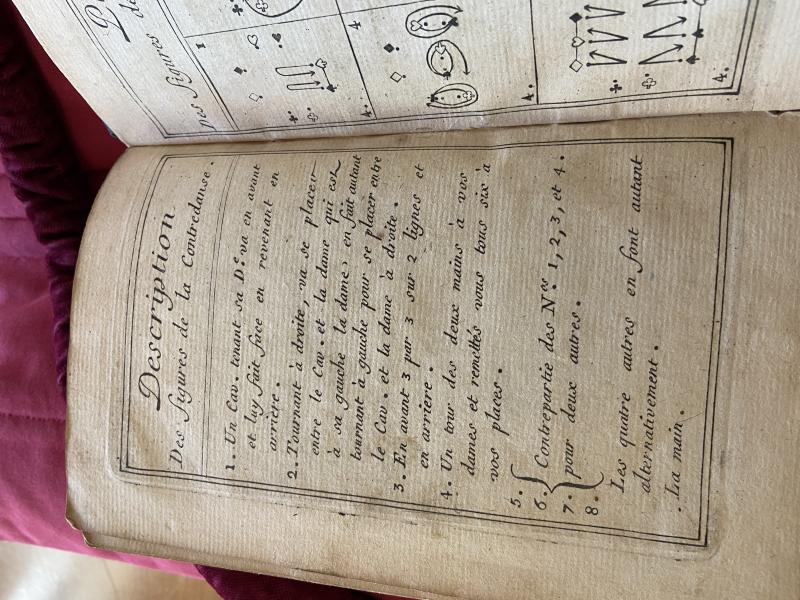 Description
Des figures de la Contredanse.
1. Un Cav. tenant sa D.e va en avant
et luy fait face en revenant en
arriere.
2. Tournant à droite, va se placer
entre le Cav. et la dame qui est
à sa gauche la dame, en fait autant
tournant à gauche pour se placer entre
le Cav. et la dame à droite.
3. En avant 3 par 3 sur 2 lignes et
en arriere.
4. Un tour des deux mains à vos
dames et remettés vous tous six à
vos places.
5.
6. Contrepartie des N.os 1, 2, 3, et 4.
7. pour deux autres.
8.
Les quatre autres en font autant
alternativement.
. La main.
Des figures de
1
4.
4
4.
4.